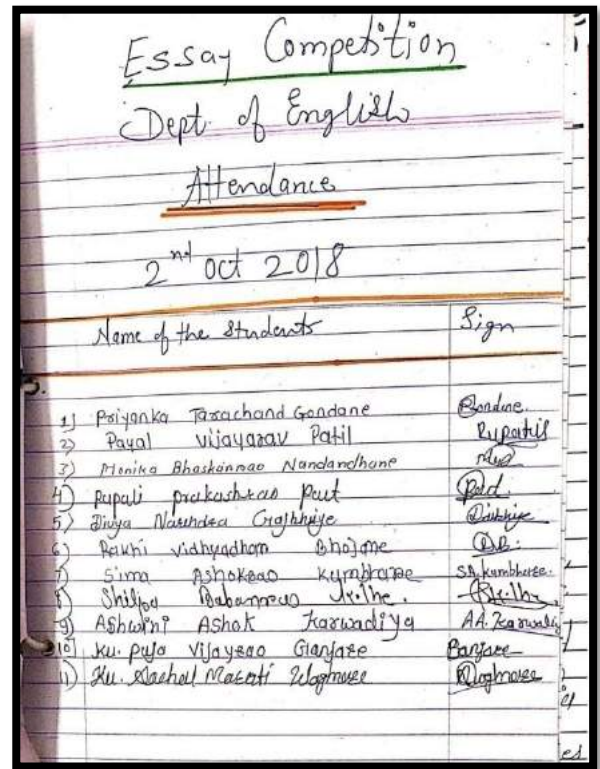 Essay Competition
Dept. of English
Attendance
2nd Oct 2018
Name of the Students Sign
1) Priyanka Tarachand Gondane Gondane.
2) Payal Vijayarav Patil
3) Monika Bhaskarrao Nandandhane
4) Rupali prakashrao Raut
5) Divya Narendra Gajbhiye
6) Rakhi Vidhyadham Bhojane
7) Sima Ashokrao Kumbhare S.A. Kumbhare.
8) Shilpa Babanrao
9) Ashwini Ashok Karwadiya A.A. Karwadiya
10) Ku. Puja Vijayrao Ganjare
11) Ku. Aachal Maroti Wagmare Waghmare